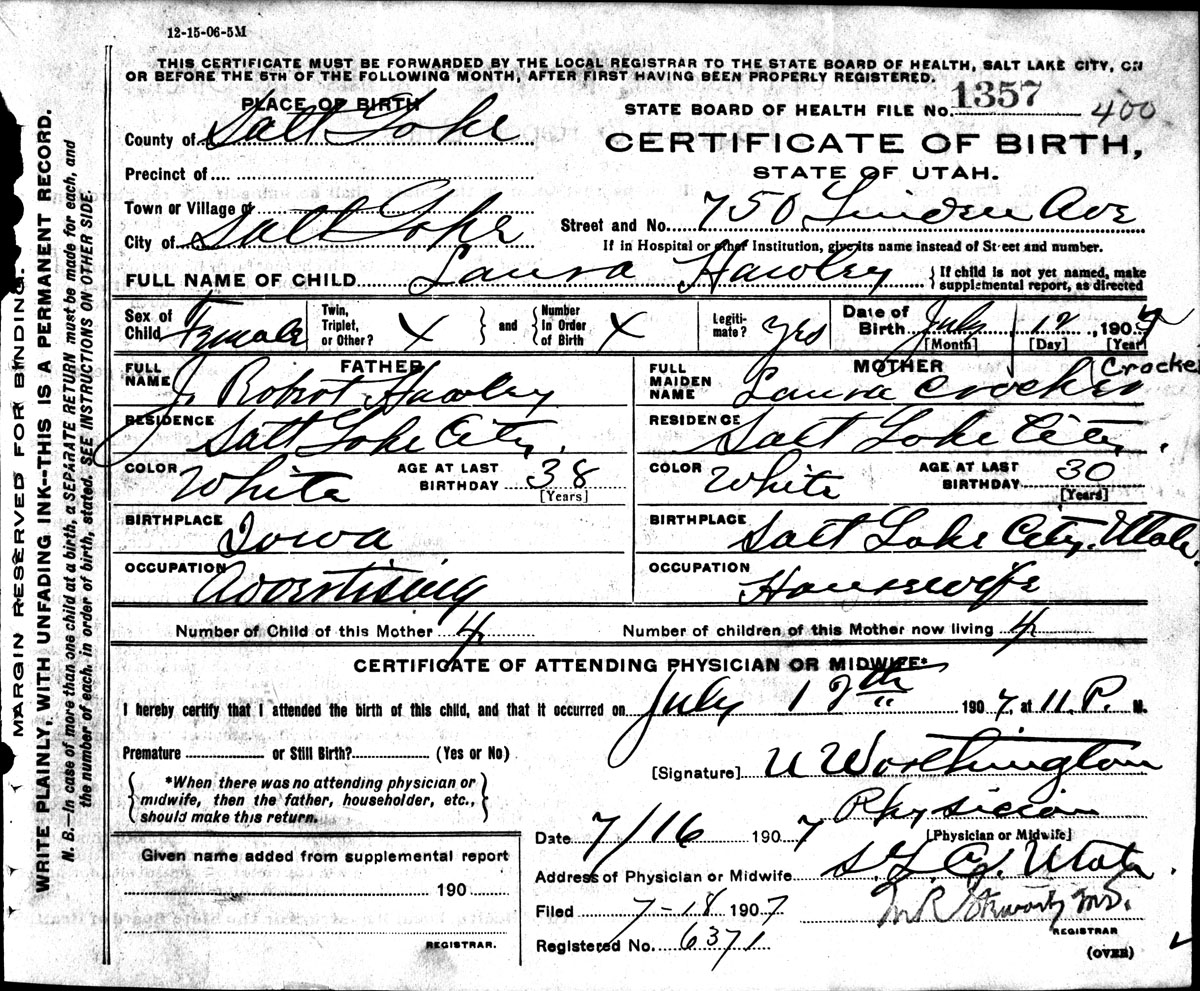 12-15-06-5M
THIS CERTIFICATE MUST BE FORWARDED BY THE LOCAL REGISTRAR TO THE STATE BOARD OF HEALTH, SALT LAKE CITY, ON
OR BEFORE THE 5TH OF THE FOLLOWING MONTH, AFTER FIRST HAVING BEEN PROPERLY REGISTERED.
PLACE OF BIRTH
STATE BOARD OF HEALTH FILE No. 1357 400
County of Salt Lake
CERTIFICATE OF BIRTH,
STATE OF UTAH.
Precinct of
Town or Village of
Street and No. 750 Linden Ave
City of Salt Lake
If in Hospital or other Institution, give its name instead of Street and number.
FULL NAME OF CHILD Laura Hawley
{If child is not yet named, make
supplemental report, as directed
Sex of Child Female
Twin, Triplet, or Other? X } and { Number In Order of Birth X
Legiti-mate? Yes
Date of Birth July 12, 1907
[Month] [Day] [Year]
FATHER
FULL NAME J. Robert Hawley
RESIDENCE Salt Lake City.
COLOR White
AGE AT LAST BIRTHDAY 38
[Years]
BIRTHPLACE Iowa
OCCUPATION Advertising
MOTHER
Crocker
FULL MAIDEN NAME Laura Crocker
RESIDENCE Salt Lake City.
COLOR White
AGE AT LAST BIRTHDAY 30
[Years]
BIRTHPLACE Salt Lake City. Utah.
OCCUPATION Housewife
Number of Child of this Mother 4
Number of children of this Mother now living 4
CERTIFICATE OF ATTENDING PHYSICIAN OR MIDWIFE*
I hereby certify that I attended the birth of this child, and that it occurred on July 12th 1907, at 11. P. M.
Premature or Still Birth? (Yes or No)
{ *When there was no attending physician or
midwife, then the father, householder, etc.,
should make this return. }
[Signature] U Worthington
Physician
[Physician or Midwife]
Date 7/16 1907
Address of Physician or Midwife S. L. Cy. Utah.
Filed 7-18 1907
M.D.
REGISTRAR
Registered No. 6371
(OVER)
Given name added from supplemental report
190
REGISTRAR.
MARGIN RESERVED FOR BINDING.
WRITE PLAINLY, WITH UNFADING INK--THIS IS A PERMANENT RECORD.
N. B.—In case of more than one child at a birth, a SEPARATE RETURN must be made for each, and
the number of each, in order of birth, stated. SEE INSTRUCTIONS ON OTHER SIDE.